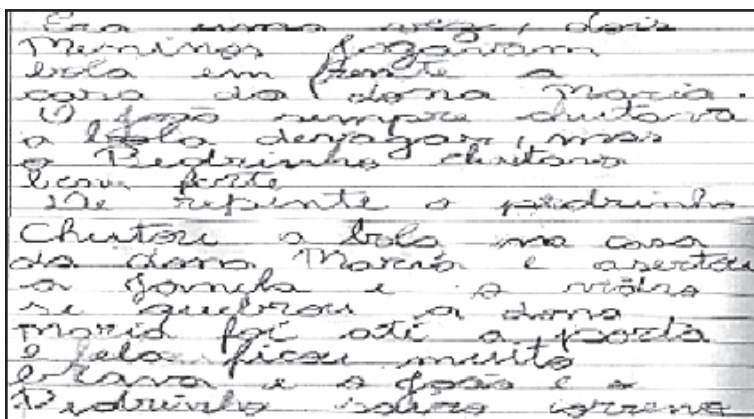 Era uma vez, dois
Meninos jogavam
bola em frente a
casa da dona Maria.
O João sempre chutava
a bola devagar, mas
o Pedrinho chutava
bem forte
De repente o pedrinho
Chutou a bola na casa
da dona Maria e asertou
a janela e o vidro
se quebrou a dona
maria foi até a porta
e ela ficou muito
brava e o João e o
Pedrinho